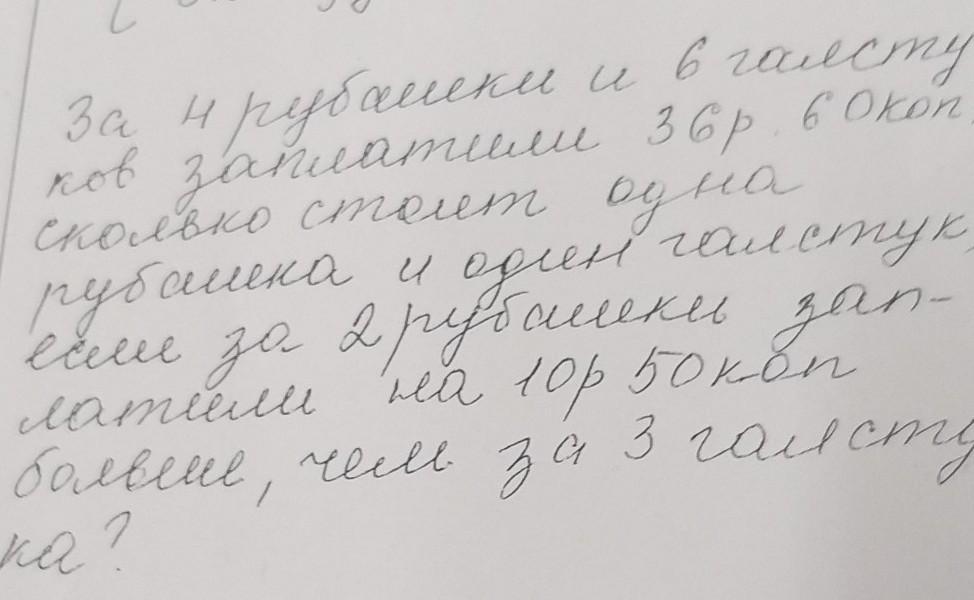 За 4 рубашки и 6 галсту
ков заплатили 36р. 60коп.
сколько стоит одна
рубашка и один галстук,
если за 2 рубашки зап-
латили на 10р 50коп
больше, чем за 3 галсту
ка?